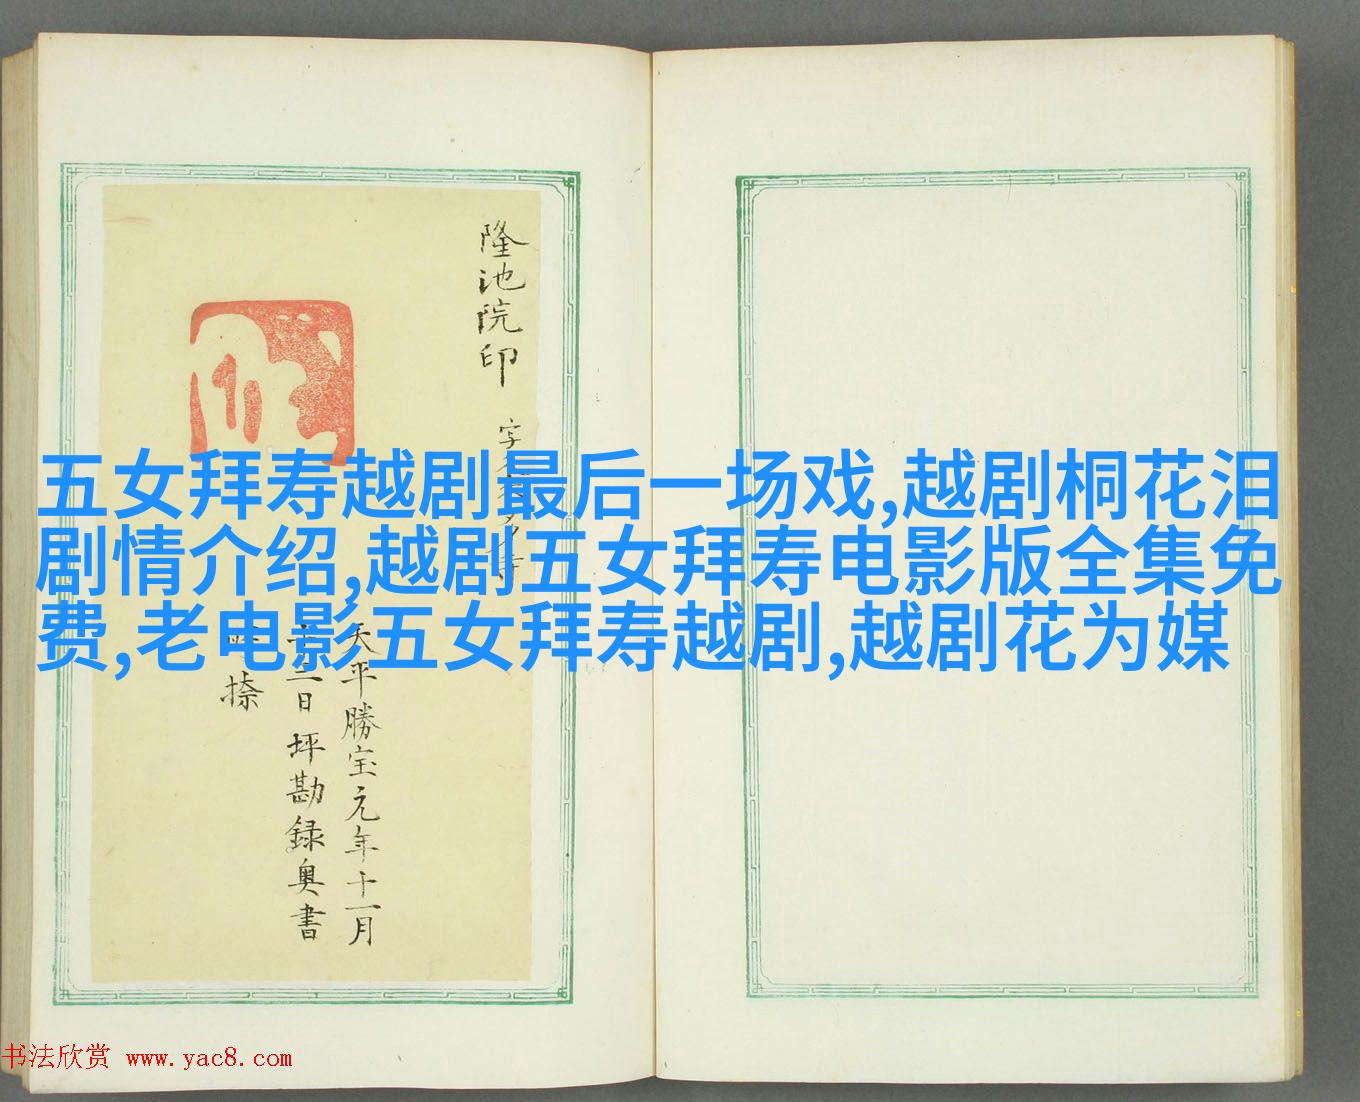 五女拜寿越剧最后一场戏,越剧桐花泪
剧情介绍,越剧五女拜寿电影版全集免
费,老电影五女拜寿越剧,越剧花为媒
隆池院印
字
天平勝宝元年十一月
日坪勘録奥書
捺
书法欣赏 www.yac8.com